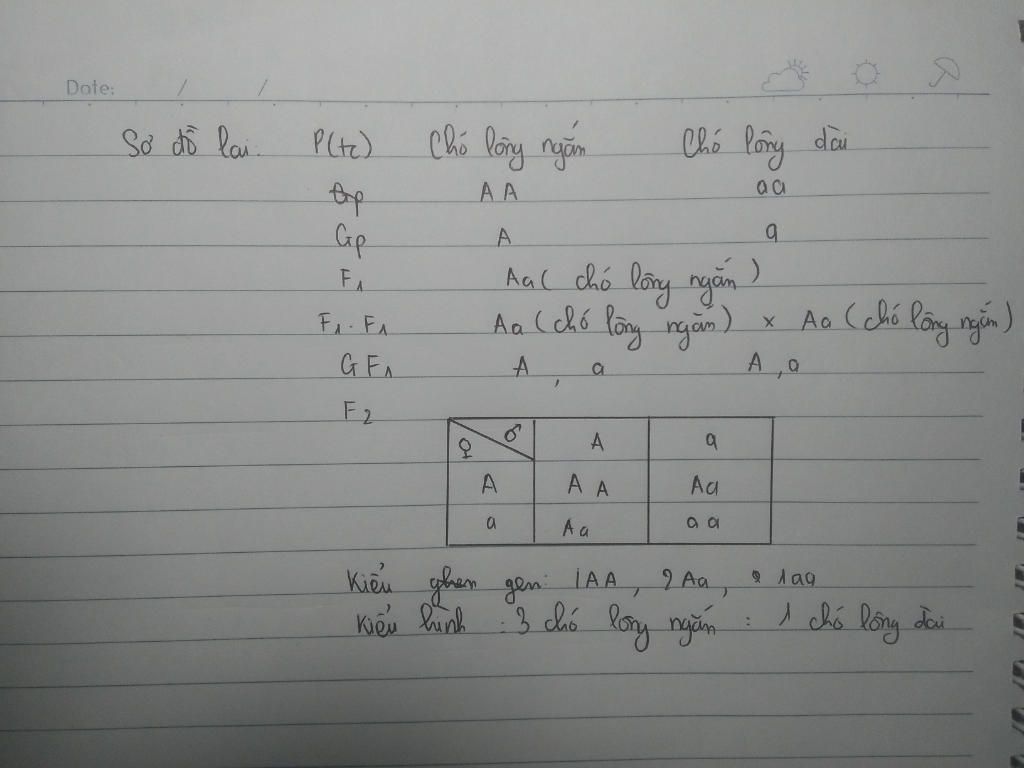 Date: / /
Sơ đồ lai: P(tc) Chó lông ngắn Chó lông dài
Gp AA aa
Gp A a
F1 Aa (chó lông ngắn)
F1 . F1 Aa (chó lông ngắn) x Aa (chó lông ngắn)
GF1 A , a A , a
F2
♀ ♂ A a
A AA Aa
a Aa aa
Kiểu ghen gen: 1AA, 2Aa, 1aa
Kiểu hình : 3 chó lông ngắn : 1 chó lông dài